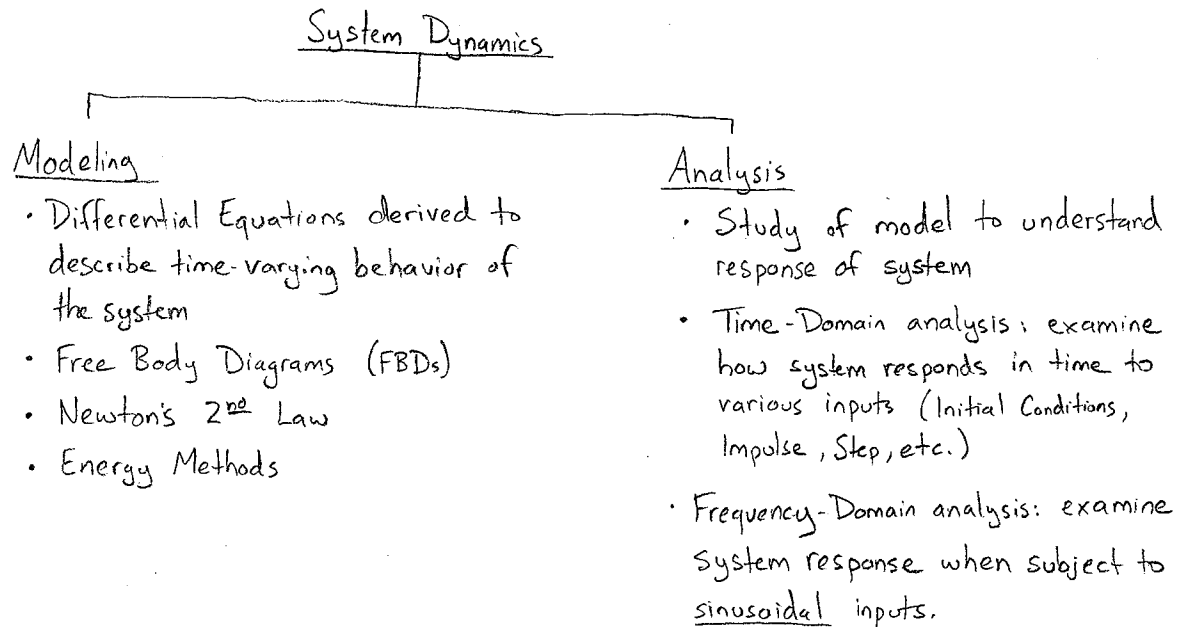 System Dynamics
Modeling
• Differential Equations derived to
describe time-varying behavior of
the system
• Free Body Diagrams (FBDs)
• Newton's 2nd Law
• Energy Methods
Analysis
• Study of model to understand
response of system
• Time-Domain analysis: examine
how system responds in time to
various inputs (Initial Conditions,
Impulse, Step, etc.)
• Frequency-Domain analysis: examine
system response when subject to
sinusoidal inputs.